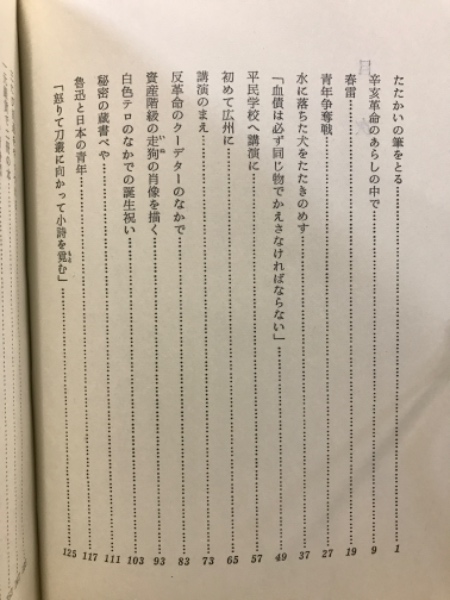 たたかいの筆をとる……1
辛亥革命のあらしの中で……9
春雷……19
青年争奪戦……27
水に落ちた犬をたたきのめす……37
「血債は必ず同じ物でかえさなければならない」……49
平民学校へ講演に……57
初めて広州に……65
講演のまえ……73
反革命のクーデターのなかで……83
資産階級の走狗の肖像を描く……93
白色テロのなかでの誕生祝い……103
秘密の蔵書べや……111
魯迅と日本の青年……117
「怒りて刀叢に向かって小詩を覓む」……125